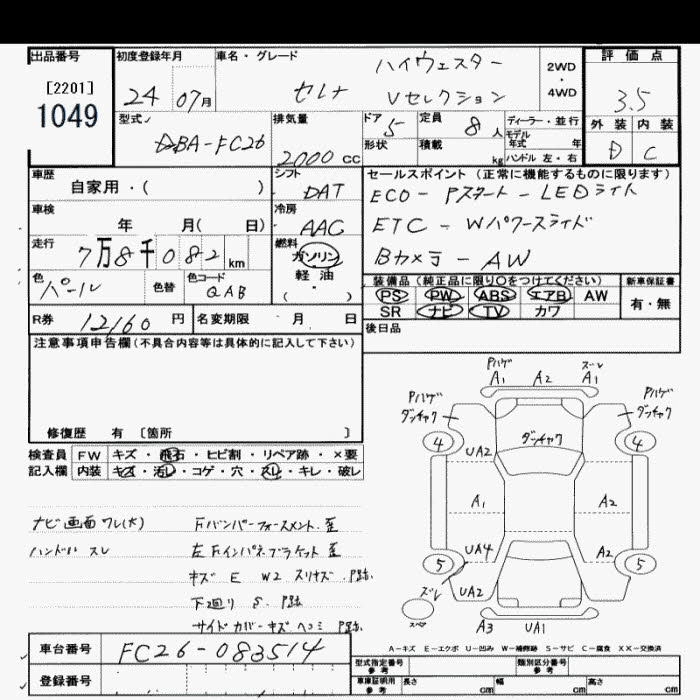 出品番号 初度登録年月 車名・グレード ハイウェスター 2WD ・ 4WD 評価点
[2201] 24 07月 セレナ Vセレクション 3.5
1049
型式 DBA-FC26 排気量 2000 CC ドア 5 定員 8 人 ディーラー・並行 外装 内装
形状 積載 kg モデル年式 年 D C
ハンドル 左・右
車歴 自家用・( ) シフト DAT セールスポイント(正常に機能するものに限ります)
ECO - Pスタート - LEDライト
車検 年 月( 日) 冷房 AAC ETC - Wパワースライド
走行 7万8千082 km 燃料 ガソリン 軽油 ・ ( ) Bカメラ - AW
色 パール 色替 色コード QAB 装備品(純正品に限り○をつけてください) 新車保証書
PS PW ABS エアB AW 有・無
SR ナビ TV カワ
R券 12160 円 名変期限 ・ 月 日 後日品
注意事項申告欄(不具合内容等は具体的に記入して下さい)
修復歴 有 〔箇所 〕
検査員 FW キズ・飛石・ヒビ割・リペア跡・×要
記入欄 内装 キズ・汚レ・コゲ・穴・スレ・キレ・破レ
Pハゲ ズレ
A1 A2 A1
Pハゲ Pハゲ
ダッチャク ダッチャク
4 ダッチャク 4
UA2
A1 A2
UA4 A2
5 5
ズレ UA2
スペア A3 UA1
ナビ画面ワレ(大) Fバンパーフォースメント歪
ハンドル スレ 左Fインパネブラケット歪
キズ E W2 スリキズ.P跡
下廻り S. P跡
サイドカバーキズヘコミ P跡
A-キズ E-エクボ U-凹み W-補修跡 S-サビ C-腐食 XX-交換済
車台番号 FC26-083514
型式指定番号 参考 類別区分番号 参考
登録番号 車庫証明用 参考 長さ cm 幅 cm 高さ cm